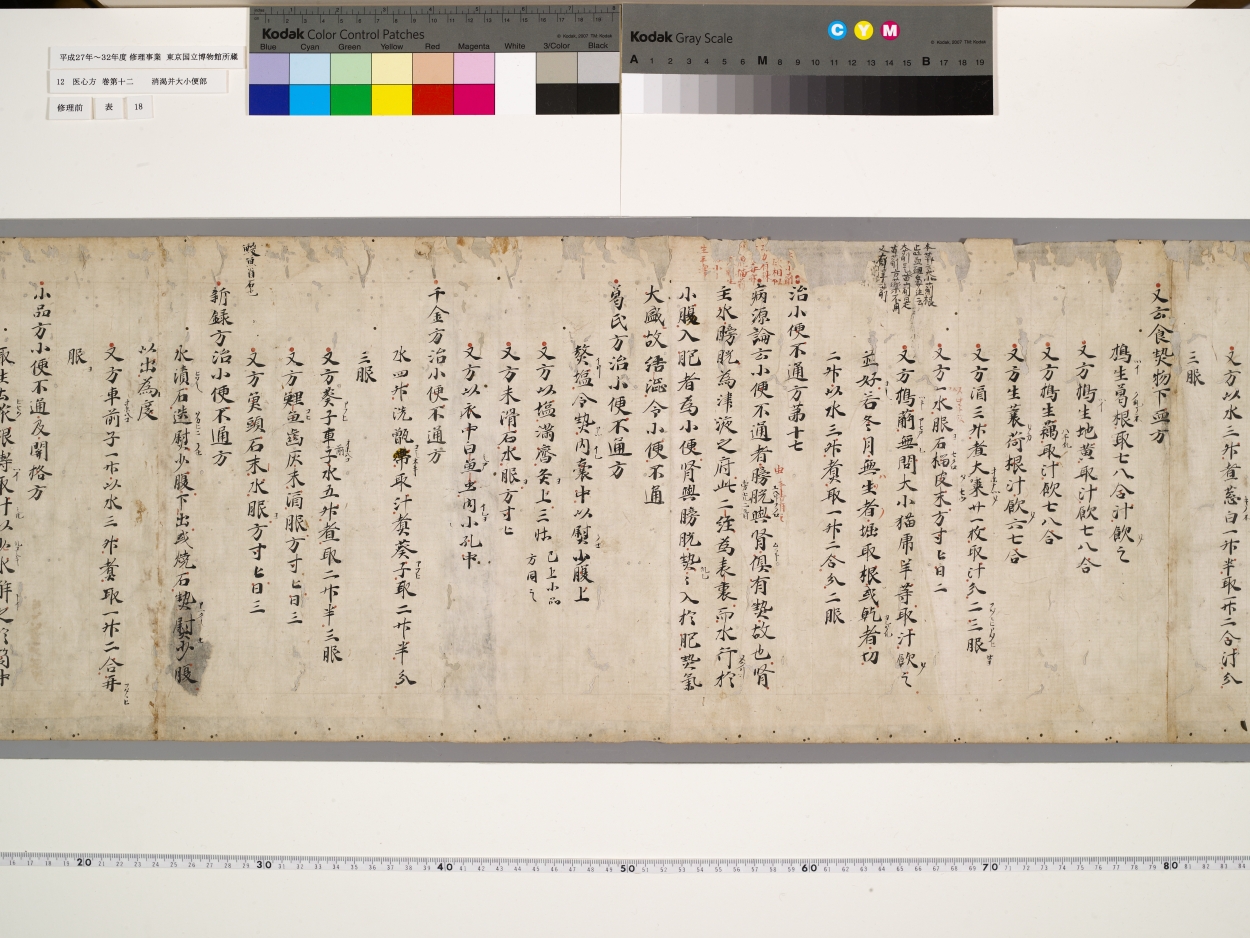 平成27年～32年度 修理事業 東京国立博物館所蔵
12 医心方 巻第十二 消渇并大小便部
修理前 表 18
Kodak Color Control Patches
© Kodak, 2007 TM: Kodak
Blue Cyan Green Yellow Red Magenta White 3/Color Black
Kodak Gray Scale
C Y M
© Kodak, 2007 TM: Kodak
A 1 2 3 4 5 6 M 8 9 10 11 12 13 14 15 B 17 18 19
又方以水三升煮葱白一升半取一升二合汁分
三服
又云食埶物下血方
搗生葛根取七八合汁飲之
又方搗生地黄取汁飲七八合
又方搗生藕取汁飲七八合
又方生蘘荷根汁飲六七合
又方酒三升煮大棗廿一枚取汁分二三服
又方水服石榴皮末方寸匕日二
又方搗葪無問大小猫虎羊等取汁飲之
並好若冬月無生者堀取根或乾者切
二升以水三升煮取一升二合分二服
治小便不通方第十七
病源論云小便不通者膀胱與腎俱有埶故也腎
主水膀胱為津液之府此二経為表裏而水行於
小腹入肥者為小便腎與膀胱埶々入於肥埶氣
大盛故結澁令小便不通
葛氏方治小便不通方
熬塩令埶内囊中以熨少腹上
又方以塩満齊灸上三壮 已上小品方同之
又方末滑石水服方寸匕
又方以衣中白魚虫内小孔中
千金方治小便不通方
水四升洗甑帶取汁煮葵子取二升半分
三服
又方葵子車前子水五升煮取二升半三服
又方鯉魚齒灰末酒服方寸匕日三
又方魚頭石末水服方寸匕日三
新録方治小便不通方
水漬石迭熨少腹下出或焼石埶熨少腹
以出為度
又方車前子一升以水三升煮取一升二合再
服
小品方小便不通及関格方